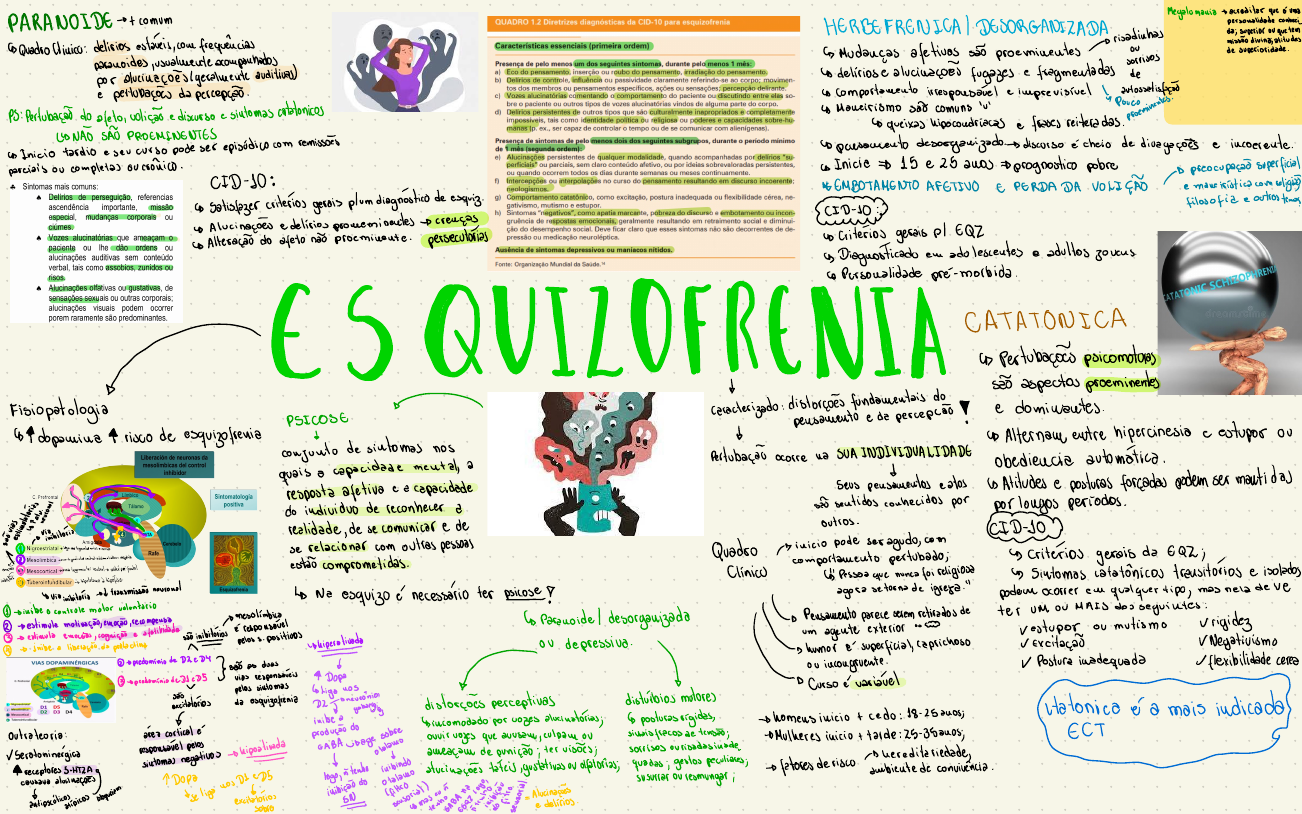 PARANOIDE → + comum
Quadro Clínico: delírios estáveis, com frequências
paranoides, usualmente acompanhados
por alucinações (geralmente auditivas)
e pertubações da percepção.
PS: Pertubação do afeto, volição e discurso e sintomas catatonicos
NÃO SÃO PROEMINENTES
Inicio tardio e seu curso pode ser episódico com remissões
parciais ou completas ou crônico.
Sintomas mais comuns:
Delírios de perseguição, referencias
ascendência importante, missão
especial, mudanças corporais ou
ciúmes.
Vozes alucinatórias que ameaçam o
paciente ou lhe dão ordens ou
alucinações auditivas sem conteúdo
verbal, tais como assobios, zunidos ou
risos.
Alucinações olfativas ou gustativas, de
sensações sexuais ou outras corporais;
alucinações visuais podem ocorrer
porem raramente são predominantes.
CID-10:
Satisfazer critérios gerais p/ um diagnostico de esquiz.
Alucinações e delírios proeminentes → crenças
persecutórias
Alteração do afeto não proeminente.
QUADRO 1.2 Diretrizes diagnósticas da CID-10 para esquizofrenia
Características essenciais (primeira ordem)
Presença de pelo menos um dos seguintes sintomas, durante pelo menos 1 mês:
a) Eco do pensamento, inserção ou roubo do pensamento, irradiação do pensamento.
b) Delírios de controle, influência ou passividade claramente referindo-se ao corpo; movimen-
tos dos membros ou pensamentos específicos, ações ou sensações; percepção delirante.
c) Vozes alucinatórias comentando o comportamento do paciente ou discutindo entre elas so-
bre o paciente ou outros tipos de vozes alucinatórias vindos de alguma parte do corpo.
d) Delírios persistentes de outros tipos que são culturalmente inapropriados e completamente
impossíveis, tais como identidade política ou religiosa ou poderes e capacidades sobre-hu-
manas (p. ex., ser capaz de controlar o tempo ou de se comunicar com alienígenas).
Presença de sintomas de pelo menos dois dos seguintes subgrupos, durante o período mínimo
de 1 mês (segunda ordem):
e) Alucinações persistentes de qualquer modalidade, quando acompanhadas por delírios "su-
perficiais" ou parciais, sem claro conteúdo afetivo, ou por ideias sobrevaloradas persistentes,
ou quando ocorrem todos os dias durante semanas ou meses continuamente.
f) Intercepções ou interpolações no curso do pensamento resultando em discurso incoerente;
neologismos.
g) Comportamento catatônico, como excitação, postura inadequada ou flexibilidade cérea, ne-
gativismo, mutismo e estupor.
h) Sintomas "negativos", como apatia marcante, pobreza do discurso e embotamento ou incon-
gruência de respostas emocionais, geralmente resultando em retraimento social e diminui-
ção do desempenho social. Deve ficar claro que esses sintomas não são decorrentes de de-
pressão ou medicação neuroléptica.
Ausência de sintomas depressivos ou maníacos nítidos.
Fonte: Organização Mundial da Saúde.
HERBEFRENICA / DESORGANIZADA
Mudanças afetivos são proeminentes
risadinhas
ou
sorrisos
de
autosatisfação
delírios e alucinações fugazes e fragmentadas
Pouco proeminentes.
Comportamento irresponsável e imprevisível
Maneirismo são comuns
queixas hipocondríacas e frases reiteradas.
pensamento desorganizado → discurso é cheio de divagações e incoerente.
Inicie ⇒ 15 e 25 anos → prognostico pobre
EMBOTAMENTO AFETIVO E PERDA DA VOLIÇÃO
preocupação superficial
e maneirística com religião
filosofia e outros temas
CID-10
Critérios gerais p/ EQZ
Diagnosticado em adolescentes e adultos jovens
Personalidade pré-morbida.
Megalomania → acreditar que é uma
personalidade conheci
da; superior ou que tem
missão divina, atitudes
de superiosidade.
ESQUIZOFRENIA
CATATONIC SCHIZOPHRENI
CATATONICA
Pertubações psicomotoras
são aspectos proeminentes
e dominantes.
Alternam entre hipercinesia e estupor ou
obediencia automática.
Atitudes e posturas forçadas podem ser mantidas
por longos períodos.
CID-10
Critérios gerais da EQZ;
Sintomas catatónicos transitórios e isolados
podem ocorrer em qualquer tipo, mas neia deve
ter UM ou MAIS dos seguintes:
✓ estupor ou mutismo ✓ rigidez
✓ Excitação ✓ Negativismo
✓ Postura inadequada ✓ flexibilidade cerea
atatonica é a mais indicada
ECT
Fisiopatologia
↑ dopamina ↑ risco de esquizofrenia
Liberación de neuronas de
mesolímbicas del control
inhibidor
Sintomatología
positiva
C. Prefrontal
Tálamo
Rafe
Esquizofrenia
Nigroestriatal
Mesolímbica
Mesocortical
Tuberoinfundibular
Via inibitoria → d transmissão neuronal
① → inibe o controle motor voluntario
② → estimula motivação, emoção, recompensa
③ → estimula emoções, cognição e afetividade
④ → inibe a liberação da prolactina
VIAS DOPAMINÉRGICAS
são inibitórios
mesolímbica
é responsável
pelos s. positivos
② → predomínio de D2 e D4
③ → predomínio de D1 e D5
são as duas
vias responsáveis
pelos sintomas
da esquizofrenia
são
excitatórios
área cortical é
responsável pelos
sintomas negativos → hipoativada
↑ Dopa
se liga nos D1 e D5
excitatórios
Outra teoria:
✓ Serotoninérgica
↑ receptores 5-HT2A →
causava alucinações
antipsicóticos
atípicos bloqueiam
hiperativada
↑ Dopa
liga nos
D2
inibe a
produção do
GABA
PSICOSE
conjunto de sintomas nos
quais a capacidade mental, a
resposta afetiva e a capacidade
do individuo de reconhecer a
realidade, de se comunicar e de
se relacionar com outras pessoas
estão comprometidas.
Na esquizo é necessário ter psicose!
Paranoide / desorganizada
ou depressiva.
distorções perceptivas
incomodado por vozes alucinatórias;
ouvir vozes que acusam, culpam ou
ameaçam de punição; ter visões;
alucinações táteis, gustativas ou olfatorias;
distúrbios motores
posturas rígidas,
sinais francos de tensão;
sorrisos ou risadas inade
quadas; gestos peculiares;
sussurrar ou resmungar;
= Alucinações
e delírios
Caracterizado: distorções fundamentais do
pensamento e da percepção!
Pertubação ocorre na SUA INDIVIDUALIDADE
Seus pensamentos e atos
são sentidos conhecidos por
outros.
Quadro
Clínico
início pode ser agudo, com
comportamento pertubado;
"Pessoa que nunca foi religiosa
agora se torna de igreja."
Pensamento parece serem retirados de
um agente exterior
humor é superficial, caprichoso
ou incongruente.
Curso é variável
→ Homens inicio + cedo: 18-25 anos;
→ Mulheres inicio + tarde: 25-35 anos;
→ fatores de risco → hereditariedade,
ambiente de convivência.